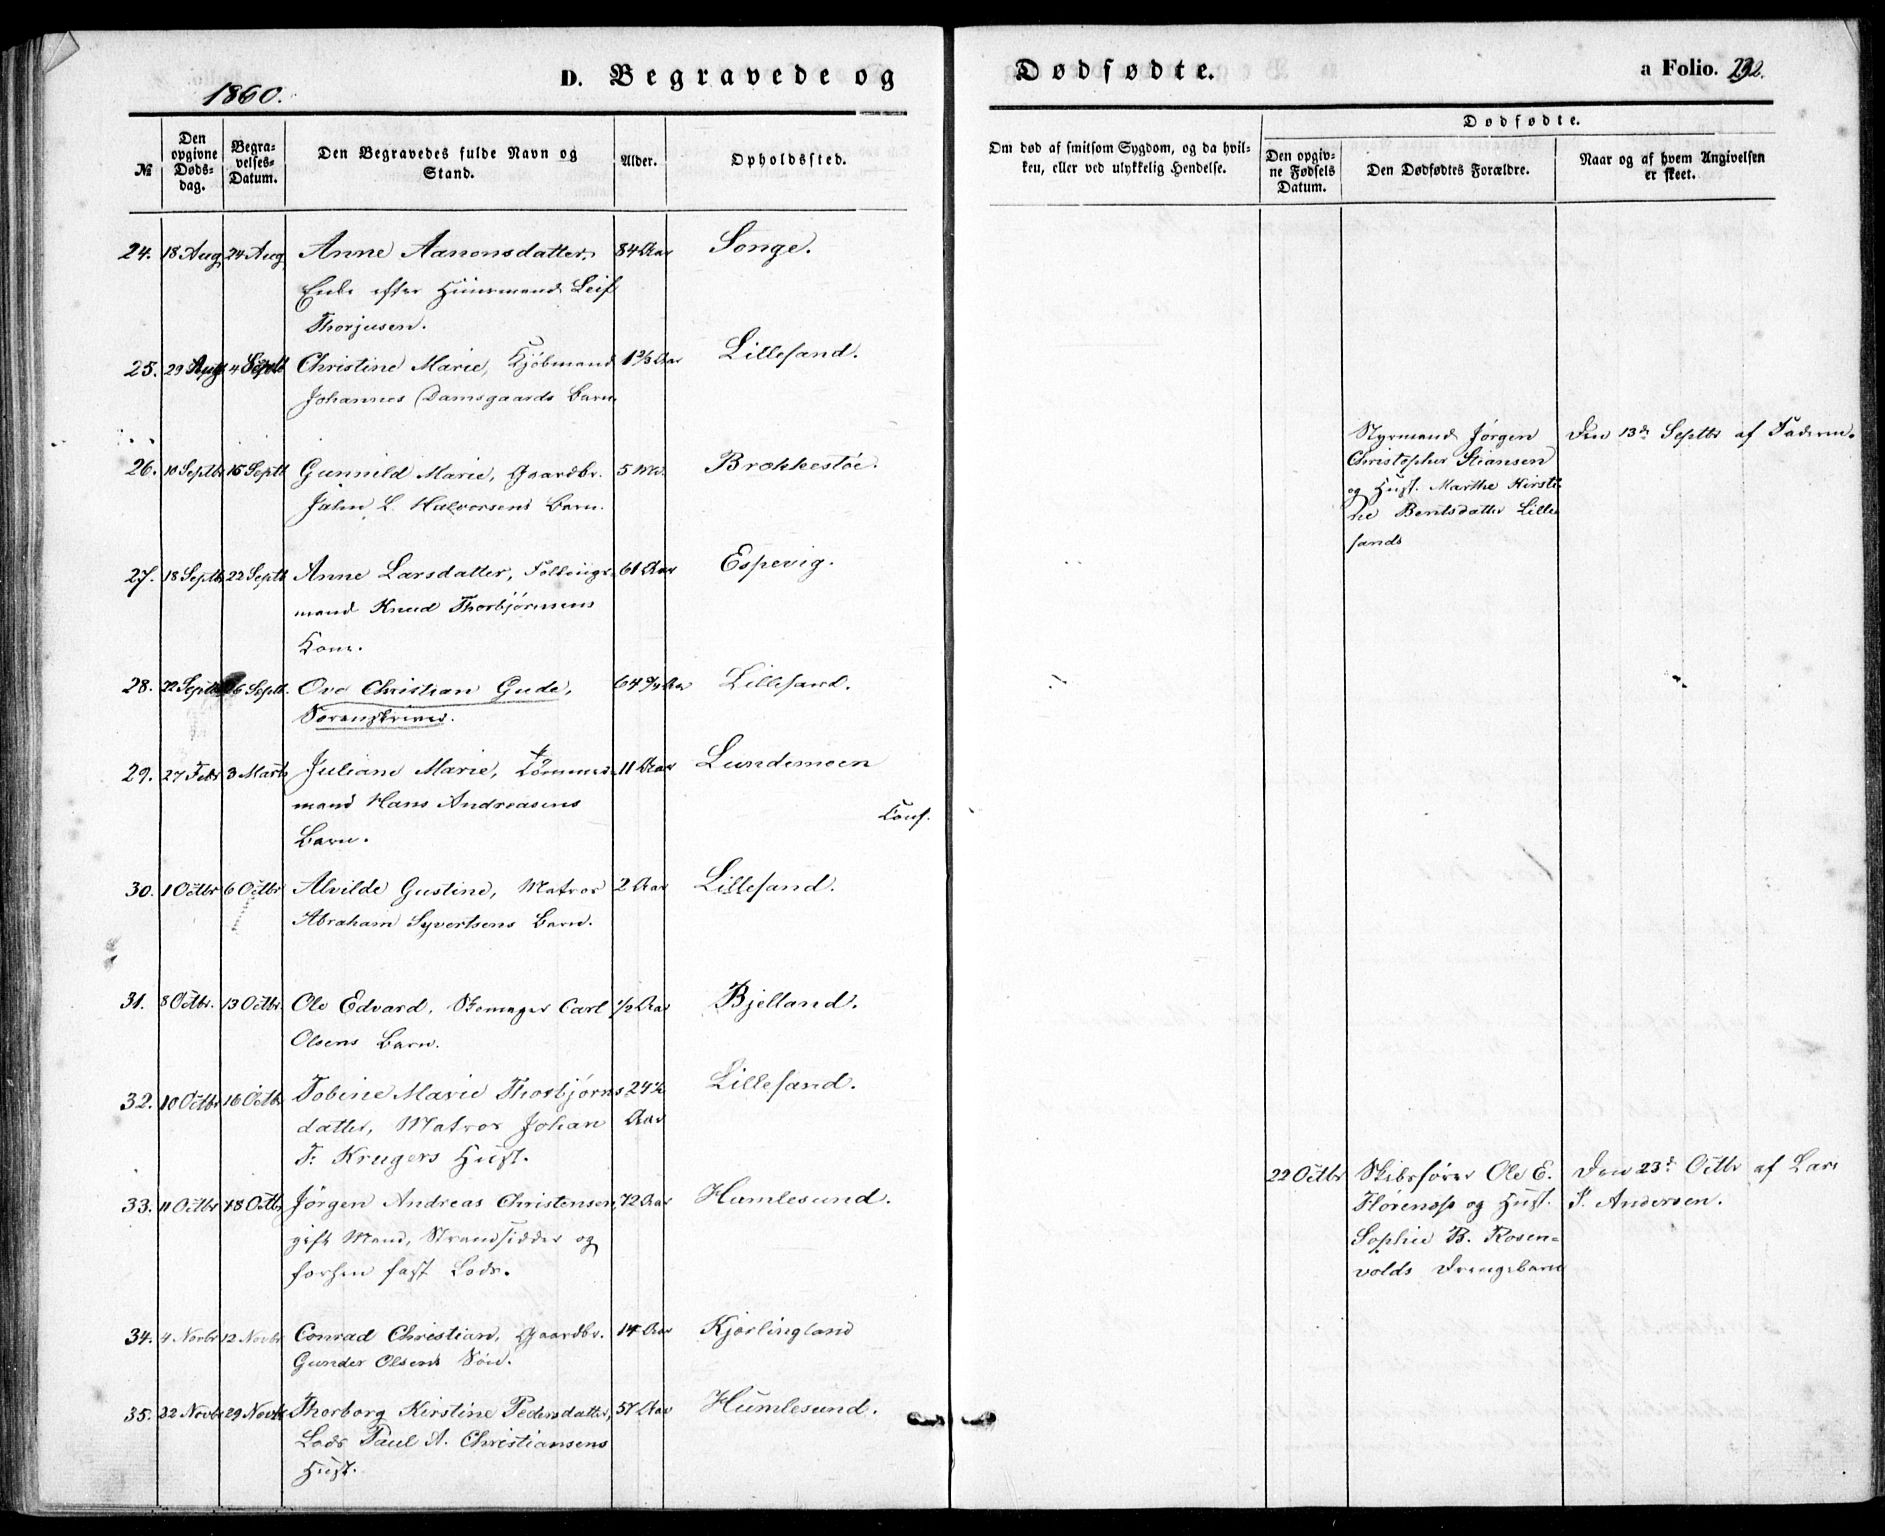 1860.
D. Begravede og
Dødfødte.
a Folio. 232.
№
Den opgivne Døds-dag.
Begra-velses-Datum.
Den Begravedes fulde Navn og Stand.
Alder.
Opholdssted.
Om død af smitsom Sygdom, og da hvil-
ken, eller ved ulykkelig Hendelse.
Dødfødte.
Den opgiv-ne Fødsels Datum.
Den Dødfødtes Forældre.
Naar og af hvem Angivelsen er skeet.
24. 18 Aug 24 Aug Anne Aanonsdatter, 84 Aar Songe.
Enke efter Huusmand Leif
Thorjusen.
25. 29 Aug 4 Septb Christine Marie, Kjøbmand 1⅔ Aar Lillesand.
Johannes Damsgaards Barn.
26. 10 Septbr 15 Septb Gunnild Marie, Gaardbr. 5 Brækkestøe.
Jahn L. Halvorsens Barn.
27. 18 Septb 22 Septb Anne Larsdatter, 61 Aar Espevig.
mand Knud Thorbjörnsens
Kone.
28. 22 Septb 26 Septb. Ove Christian Gude, 64 Aar Lillesand.
Sorenskriver.
29. 27 Febr 3 Marts Juliane Marie, Tømmer- 11 Aar Lundemoen
mand Hans Andreasens
Conf.
Barn.
30. 1 Octbr 6 Octbr Alvilde Gustine, Matros 2 Aar Lillesand.
Abraham Syvertsens Barn.
31. 8 Octbr. 13 Octbr. Ole Edvard, Skomager Carl ½ Aar Bjelland.
Olsens Barn.
32. 10 Octbr 16 Octbr Tobine Marie Thorbjørns- 24½ Lillesand.
datter, Matros Johan Aar
F. Krugers Hust.
33. 11 Octbr 18 Octbr Jörgen Andreas Christensen, 72 Aar Humlesund.
gift Mand, Strandsidder og
forhen fast Lods.
34. 4 Novbr 12 Novbr Conrad Christian, Gaardbr. 14 Aar Kjørlingland
Gunder Olsens Søn.
35. 22 Novbr 29 Novbr Thorborg Kirstine Pedersdatter, 57 Aar Humlesund.
Lods Paul A. Christiansens
Hust.
Styrmand Jörgen Den 13de Septbr af Faderen.
Christopher Stiansen
og Hust. Marthe Kirsti-
ne Bentsdatter Lille
sands
22 Octbr Skibsfører Ole E. Den 23de Octbr af Lars
og Hust. P. Andersen.
Sophie B. Rosen-
volds Drengebarn